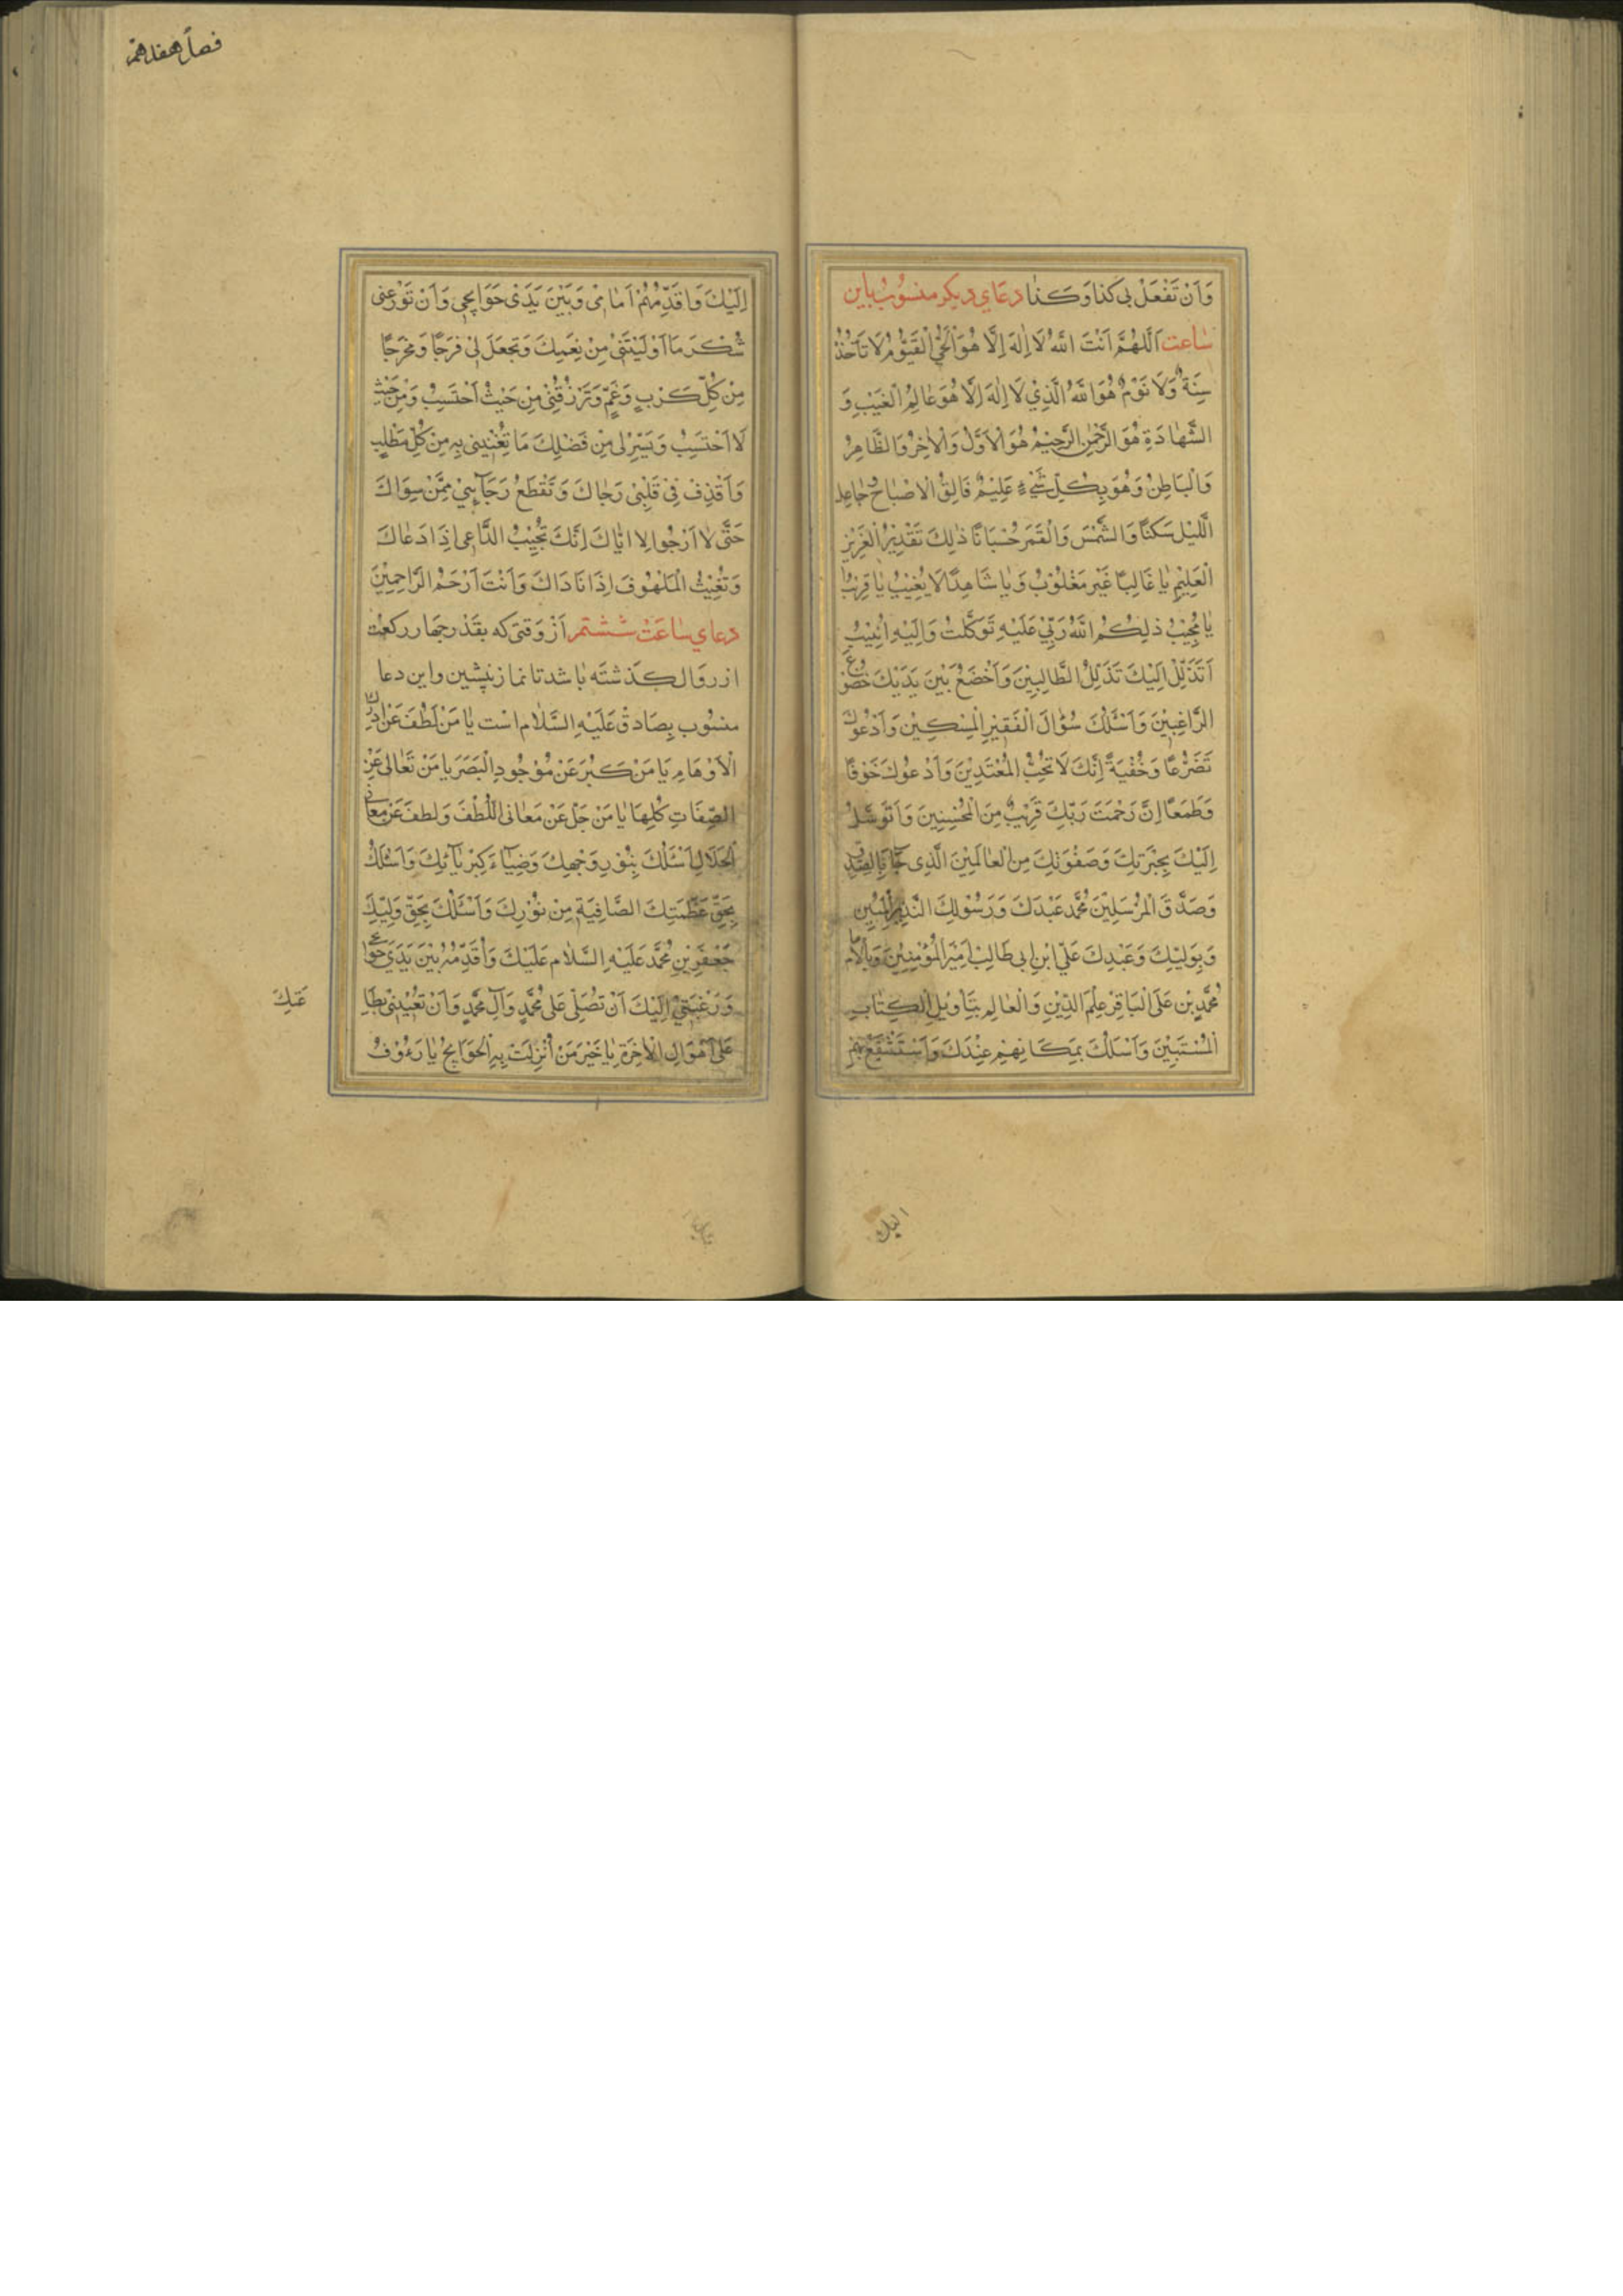 وَاَنْ تَفْعَلْ بِی كَذا وَكَذا دعَاي ديكر منسُوبْ باين
سٰاعت اَللّهُمَّ اَنْتَ اللّٰهُ لَا اِلٰهَ اِلَّا هُوَ الْحَيُّ الْقَيُّوْمُ لَا تَاْخُذُ
سِنَةٌ وَلَا نَوْمٌ هُوَ اللّٰهُ الَّذِيْ لَا اِلٰهَ اِلَّا هُوَ عَالِمُ الْغَيْبِ وَ
الشَّهَادَةِ هُوَ الرَّحْمٰنُ الرَّحِيْمُ هُوَ الْاَوَّلُ وَالْاٰخِرُ وَالظَّاهِرُ
وَالْبَاطِنُ وَهُوَ بِكُلِّ شَيْءٍ عَلِيْمٌ فَالِقُ الْاِصْبَاحِ وَجَاعِلُ
اللَّيْلِ سَكَنًا وَالشَّمْسَ وَالْقَمَرَ حُسْبَانًا ذٰلِكَ تَقْدِيْرُ الْعَزِيْزِ
الْعَلِيْمِ يٰا غَالِبًا غَيْرَ مَغْلُوْبْ وَيٰا شَاهِدًا لَا يُغِيْبُ يٰا قَرِيْبُ
يٰا مُجِيْبُ ذٰلِكُمُ اللّٰهُ رَبِّيْ عَلَيْهِ تَوَكَّلْتُ وَاِلَيْهِ اُنِيْبُ
اَتَذَلَّلُ اِلَيْكَ تَذَلُّلَ الطَّالِبِيْنَ وَاَخْضَعُ بَيْنَ يَدَيْكَ خُضُوْعَ
الرَّاغِبِيْنَ وَاَسْئَلُكَ سُؤَالَ الْفَقِيْرِ الْمِسْكِيْنَ وَاَدْعُوْكَ
تَضَرُّعًا وَخُفْيَةً اِنَّكَ لَا تُحِبُّ الْمُعْتَدِيْنَ وَاَدْعُوْكَ خَوْفًا
وَطَمَعًا اِنَّ رَحْمَتَ رَبِّكَ قَرِيْبٌ مِنَ الْمُحْسِنِيْنَ وَاَتَوَسَّلُ
اِلَيْكَ بِخِيَرَتِكَ وَصَفْوَتِكَ مِنَ الْعٰالَمِيْنَ الَّذِی جَآءَ بِالصِّدْقِ
وَصَدَّقَ الْمُرْسَلِيْنَ مُحَمَّد عَبْدِكَ وَرَسُوْلِكَ النَّذِيْرِ الْمُبِيْنِ
وَبِوَلِيِّكَ وَعَبْدِكَ عَلِيِّ ابْنِ ابِی طَالِبْ اَمِيْرَ الْمُؤْمِنِيْنَ وَبِالْاِمَامِ
مُحَمَّدٍ بْنِ عَلَى الْبَاقِرْ عَلَمَ الدِّيْنِ وَالْعَالِمِ بِتَاْوِيْلِ الْكِتَابِ
الْمُسْتَبِيْنَ وَاَسْئَلُكَ بِمَكَانِهِمْ عِنْدَكَ وَاَسْتَشْفِعُ بِهِمْ
اليك
فصل هفدهم
اِلَيْكَ وَاُقَدِّمُهُمْ اَمٰامِیْ وَبَيْنَ يَدَیْ حَوَائِجِی وَاَنْ تُوْزِعَنِی
شُكْرَ مَا اَوْلَيْتَنِیْ مِنْ نِعَمِكَ وَتَجْعَلَ لِی فَرَجًا وَمَخْرَجًا
مِنْ كُلِّ كَرْبٍ وَغَمٍّ وَتَرْزُقَنِیْ مِنْ حَيْثُ اَحْتَسِبُ وَمِنْ حَيْثُ
لَا اَحْتَسِبُ وَيَسِّرْ لِی مِنْ فَضْلِكَ مَا تُغْنِيْنِی بِهِ مِنْ كُلِّ مَطْلَبٍ
وَاَقْذِفْ فِیْ قَلْبِیْ رَجَاكَ وَتَقْطَعُ رَجَآئِیْ مِمَّنْ سِوَاكَ
حَتَّى لَا اَرْجُوا اِلا ايّٰاكَ اِنَّكَ تُجِيْبُ الدَّاعِی اِذَا دَعٰاكَ
وَتُغِيْثُ الْمَلْهُوْفَ اِذَا نَادَاكَ وَاَنْتَ اَرْحَمُ الرَّاحِمِيْنَ
دعاي سٰاعَتْ شْشتم اَز وَقتی كه بقَدْر چهَار ركعت
از زوَال كذشتَه بٰاشد تا نماز پيشين واين دعا
منسُوب بِصَادقْ عَلَيْهِ السَّلٰام اسْت يٰا مَنْ لَطُفَ عَنْ اِدْرٰاكِ
الْاَوْهَامِ يَا مَنْ كَبُرَ عَنْ مَوْجُودِ الْبَصَرِ يَا مَنْ تَعَالٰی عَنِ
الصِّفَاتِ كُلِّهَا يٰا مَنْ جَلَّ عَنْ مَعَانی اللُّطْفَ وَلطفَ عَنْ مَعَانِی
الْجَلَالِ اَسْئَلُكَ بِنُوْرِ وَجْهِكَ وَضِيَآءِ كِبْرِيَآئِكَ وَاَسْئَلُكَ
بِحَقِّ عَظَمَتِكَ الصَّافِيَةِ مِنْ نُوْرِكَ وَاَسْئَلُكَ بِحَقِّ وَلِيِّكَ
جَعْفَرِ بْنِ مُحَمَّد عَلَيْهِ السَّلٰام عَلَيْكَ وَاُقَدِّمُهُ بَيْنَ يَدَيْ حَوَائِجِی
وَرَغْبَتِیْ اِلَيْكَ اَنْ تُصَلِّی عَلٰى مُحَمَّدٍ وَآلِ مُحَمَّدٍ وَاَنْ تُعِيْنَنِیْ بِطَا
عَتِكَ
عَلٰى اَهْوَالِ الْاٰخِرَةِ يٰا خَيْرَ مَنْ اُنْزِلَتْ بِهِ الْحَوَايِجُ يٰا رَءُوْفُ